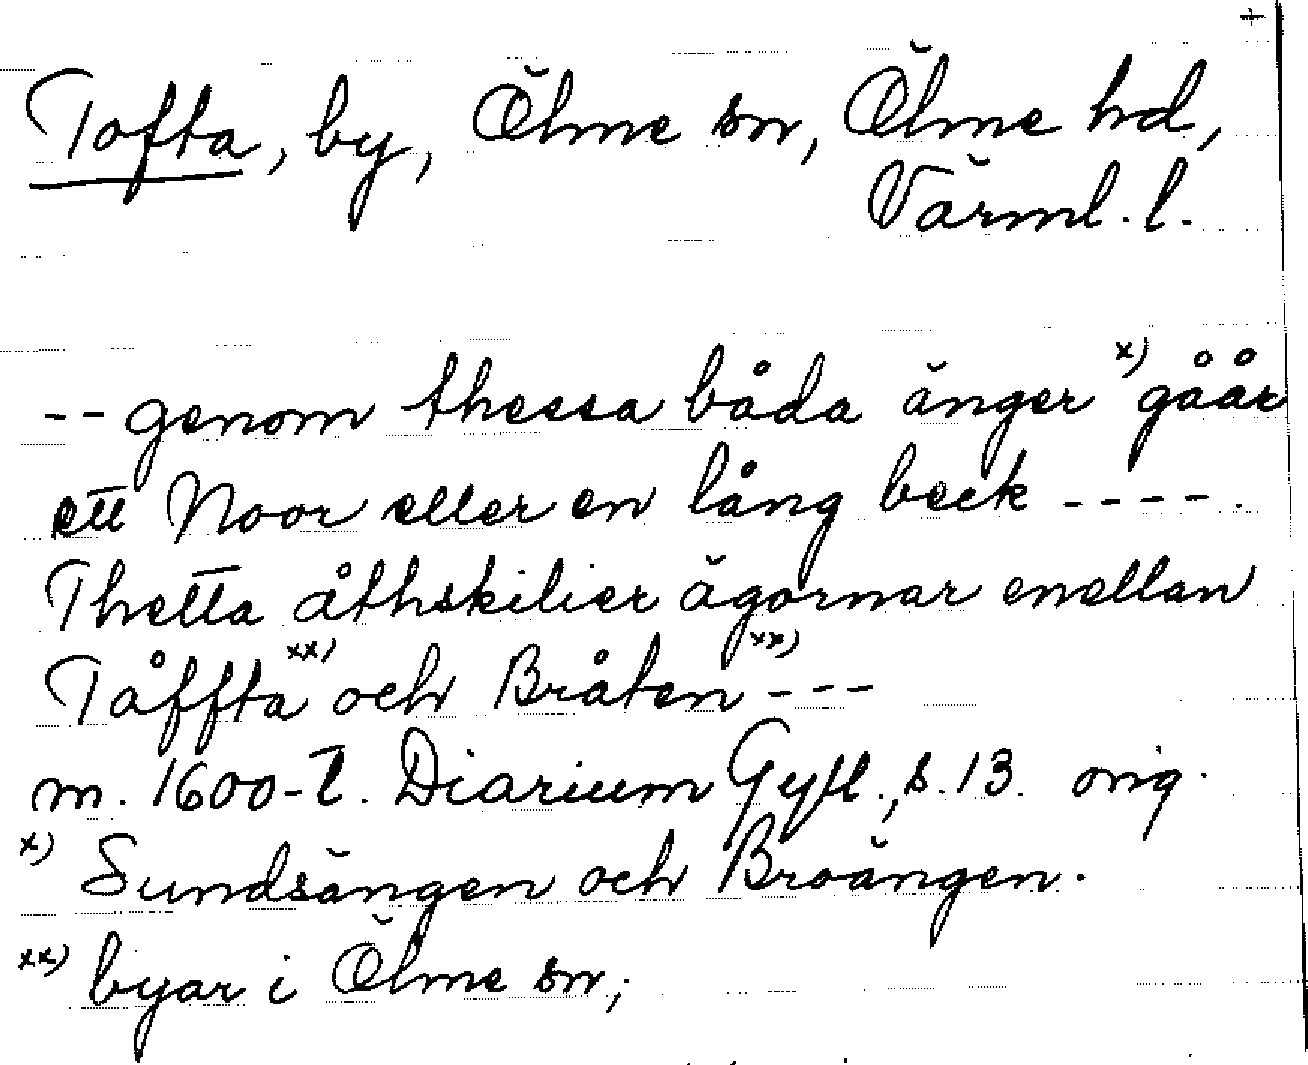 +
Tofta, by, Ölme sn, Ölme hd,
Värml. l.
-- genom thessa båda änger x) gåår
ett Noor eller en lång beck ----.
Thetta åthskilier ägornar emellan
Tåffta xx) och Bråten xx) ---
m. 1600-t. Diarium Gyll., s. 13. orig.
x) Sundsängen och Broängen.
xx) byar i Ölme sn;